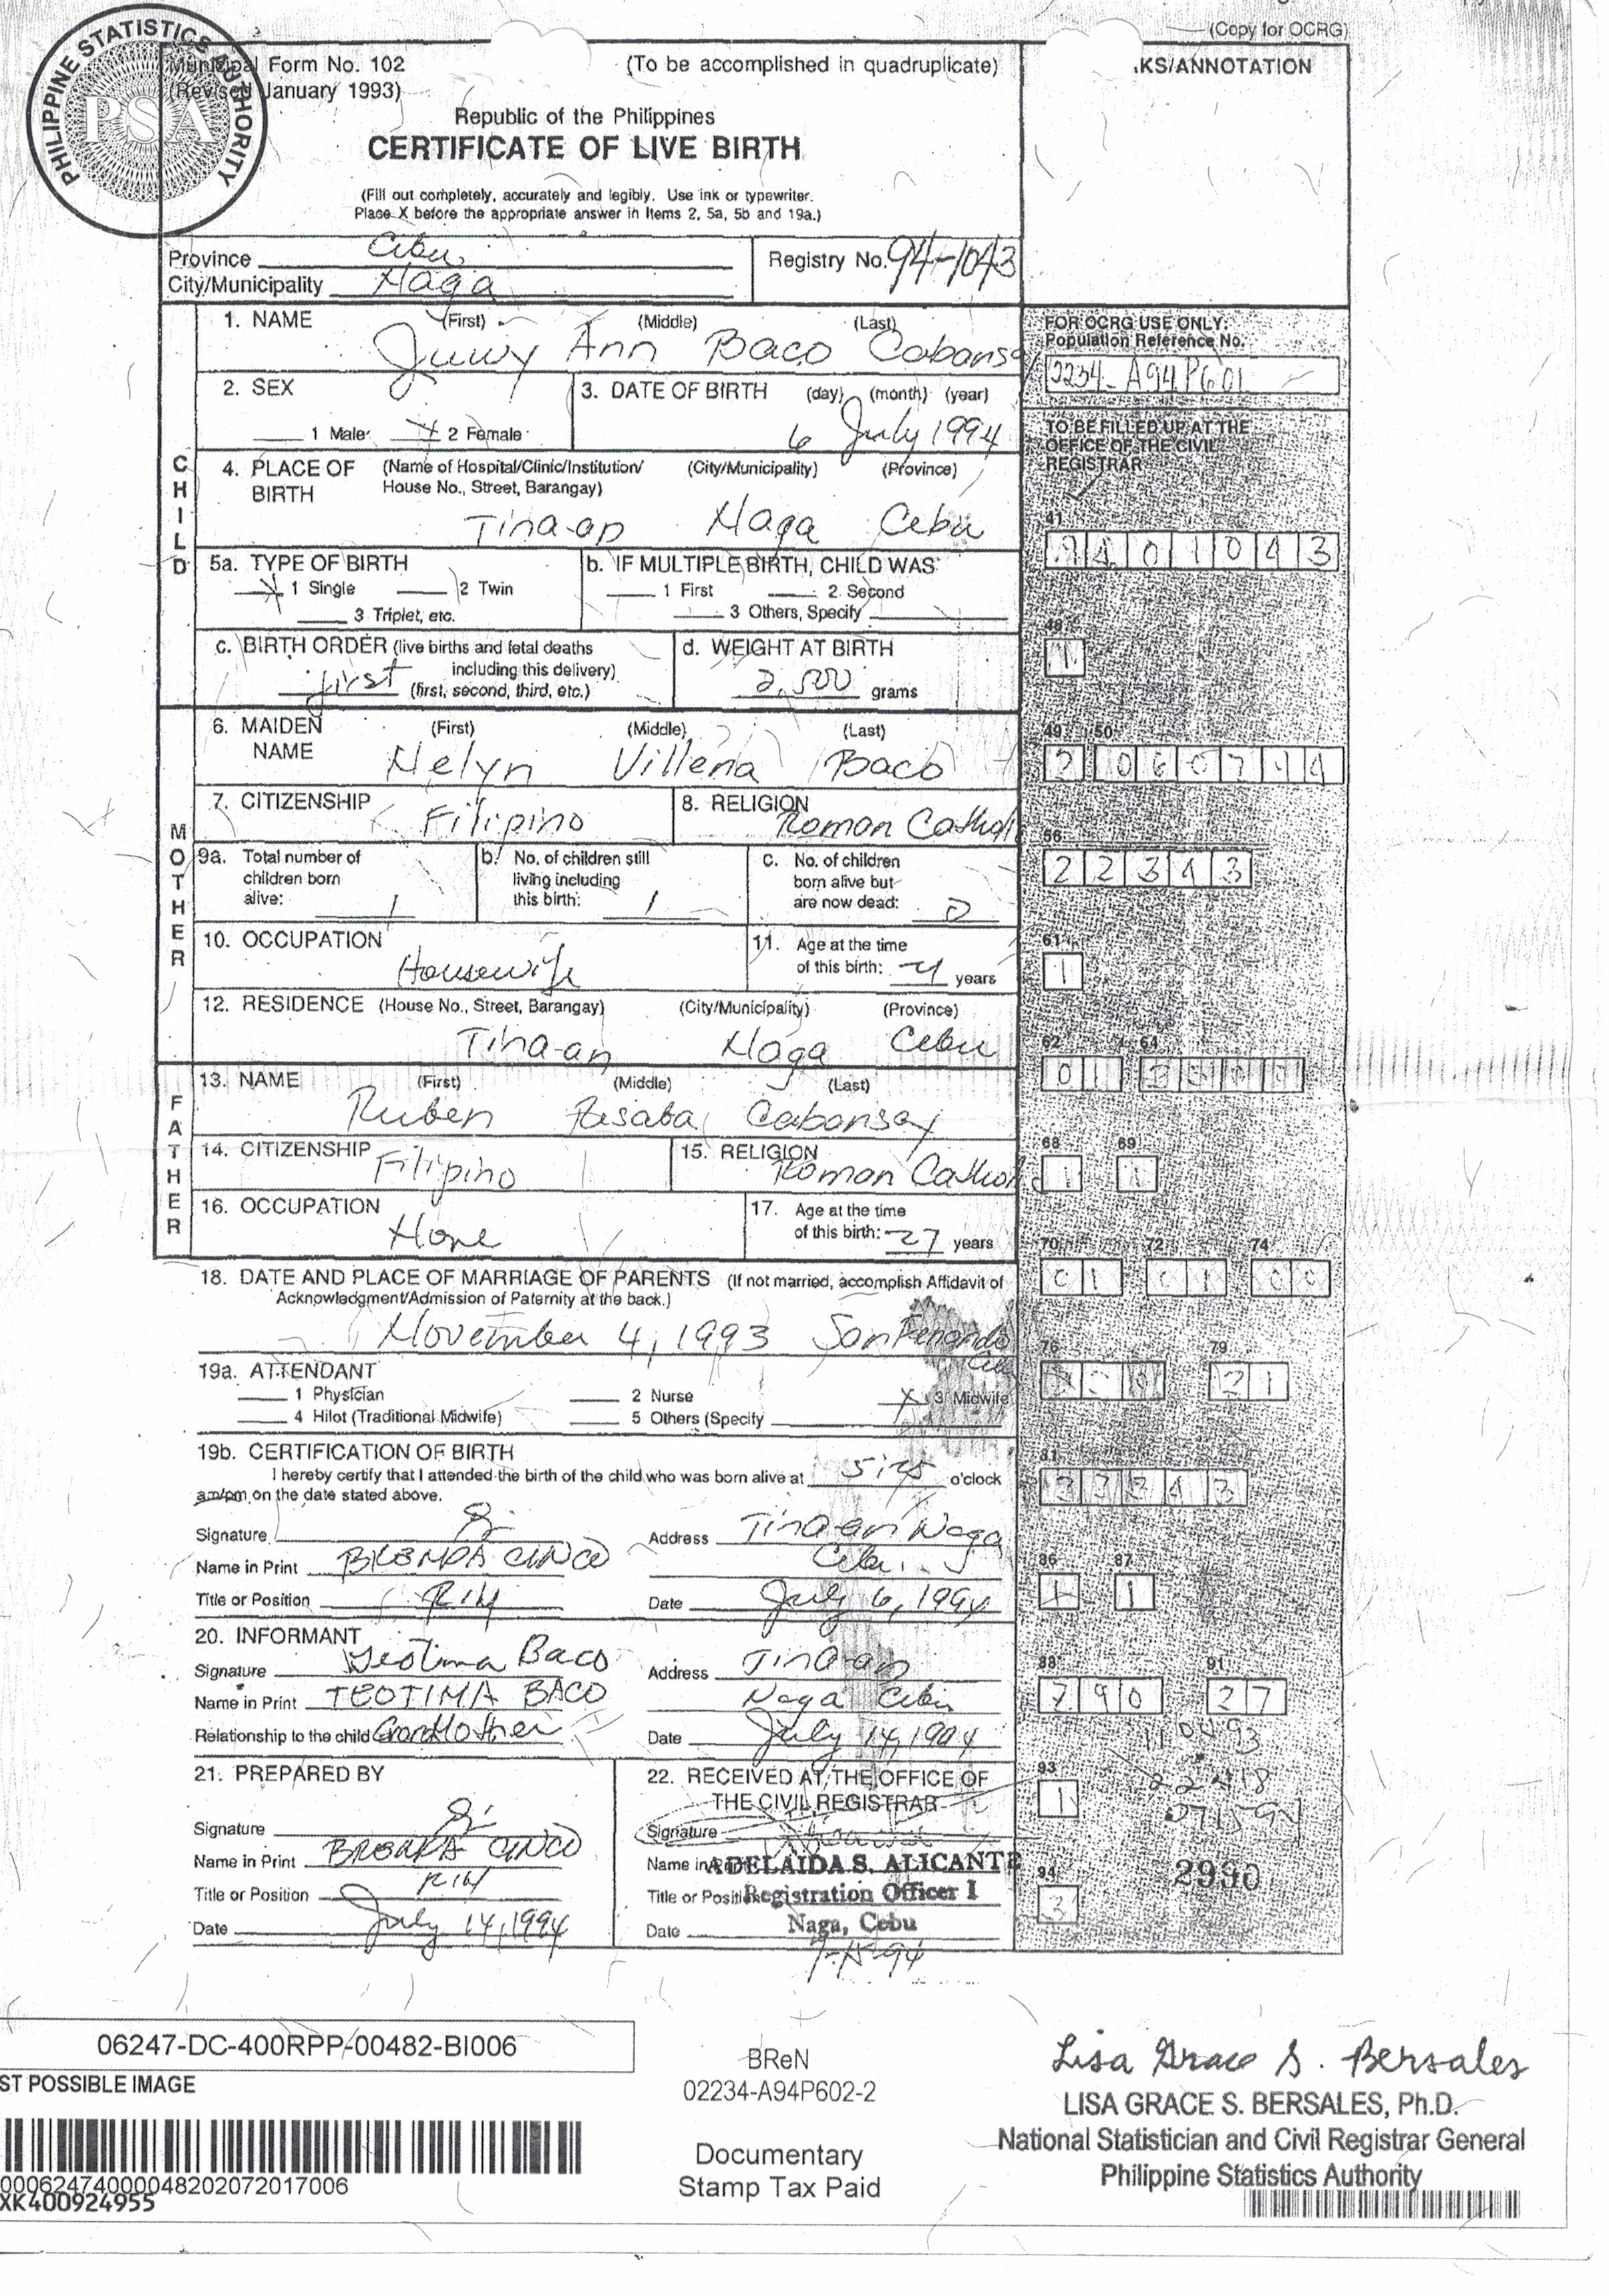 (Copy for OCRG)
PHILIPPINE STATISTICS AUTHORITY
PSA
Municipal Form No. 102
(To be accomplished in quadruplicate)
KS/ANNOTATION
(Revised January 1993)
Republic of the Philippines
CERTIFICATE OF LIVE BIRTH
(Fill out completely, accurately and legibly. Use ink or typewriter.
Place X before the appropriate answer in Items 2, 5a, 5b and 19a.)
Province Cebu
Registry No. 94-1043
City/Municipality Naga
CHILD
1. NAME (First) (Middle) (Last)
Ann Baco Cabansay
FOR OCRG USE ONLY:
Population Reference No.
2234-A94P601
2. SEX
1 Male X 2 Female
3. DATE OF BIRTH (day) (month) (year)
6 July 1994
TO BE FILLED UP AT THE
OFFICE OF THE CIVIL
REGISTRAR
4. PLACE OF BIRTH (Name of Hospital/Clinic/Institution/ House No., Street, Barangay) (City/Municipality) (Province)
Tina-an Naga Cebu
41
9401043
5a. TYPE OF BIRTH
X 1 Single 2 Twin
3 Triplet, etc.
b. IF MULTIPLE BIRTH, CHILD WAS
1 First 2 Second
3 Others, Specify
48
1
c. BIRTH ORDER (live births and fetal deaths including this delivery)
first (first, second, third, etc.)
d. WEIGHT AT BIRTH
2,500 grams
MOTHER
6. MAIDEN NAME (First) (Middle) (Last)
Nelyn Villena Baco
49 50
2 060794
7. CITIZENSHIP Filipino
8. RELIGION Roman Catholic
56
22343
9a. Total number of children born alive: 1
b. No. of children still living including this birth: 1
c. No. of children born alive but are now dead: 0
10. OCCUPATION
Housewife
11. Age at the time of this birth: years
61
1
12. RESIDENCE (House No., Street, Barangay) (City/Municipality) (Province)
Tina-an Naga Cebu
62 64
01
FATHER
13. NAME (First) (Middle) (Last)
Ruben Cabansay
14. CITIZENSHIP Filipino
15. RELIGION Roman Catholic
68 69
1 1
16. OCCUPATION
None
17. Age at the time of this birth: 27 years
70 72 74
01 01 00
18. DATE AND PLACE OF MARRIAGE OF PARENTS (If not married, accomplish Affidavit of
Acknowledgment/Admission of Paternity at the back.)
November 4, 1993 San Fernando
Cebu
19a. ATTENDANT
1 Physician 2 Nurse X 3 Midwife
4 Hilot (Traditional Midwife) 5 Others (Specify
76 79
21
19b. CERTIFICATION OF BIRTH
I hereby certify that I attended the birth of the child who was born alive at o'clock
am/pm on the date stated above.
81
Signature
Address Tina-an Naga
Cebu
Name in Print BRENDA CINCO
Title or Position RHM
Date July 6, 1994
86 87
1 1
20. INFORMANT
Signature Teotima Baco
Address Tina-an
Name in Print TEOTIMA BACO
Naga Cebu
Relationship to the child GrandMother
Date July 14, 1994
88 91
790 27
110493
21. PREPARED BY
22. RECEIVED AT THE OFFICE OF
THE CIVIL REGISTRAR
93
1
22418
071594
Signature
Signature
Name in Print BRENDA CINCO
Name in ADELAIDA S. ALICANTE
Title or Position RHM
Title or Position Registration Officer I
94
3
2990
Date July 14, 1994
Date Naga, Cebu
7-15-94
06247-DC-400RPP-00482-BI006
ST POSSIBLE IMAGE
00062474000048202072017006
XK400924955
BReN
02234-A94P602-2
Documentary
Stamp Tax Paid
Lisa Grace S. Bersales
LISA GRACE S. BERSALES, Ph.D.
National Statistician and Civil Registrar General
Philippine Statistics Authority